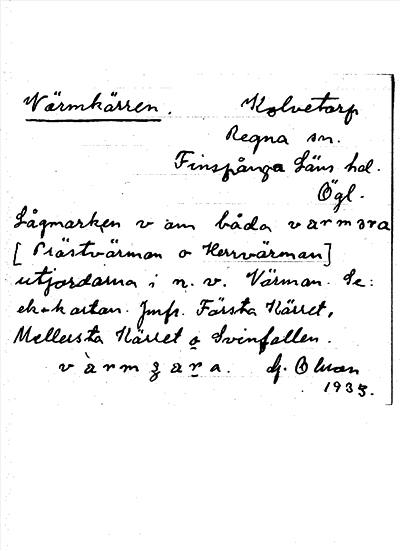 Värmkärren. Kolvetorp
Regna sn.
Finspånga Läns hd.
Ögl.
Lågmarken v om båda varmara
[Prästvärman o Herrvärman]
utjordarna i n. v. Värman. Se:
ek-kartan. Jmfr. Första Kärret,
Mellersta Kärret o Svinfallen.
vàrmzara. G. Olson
1935.